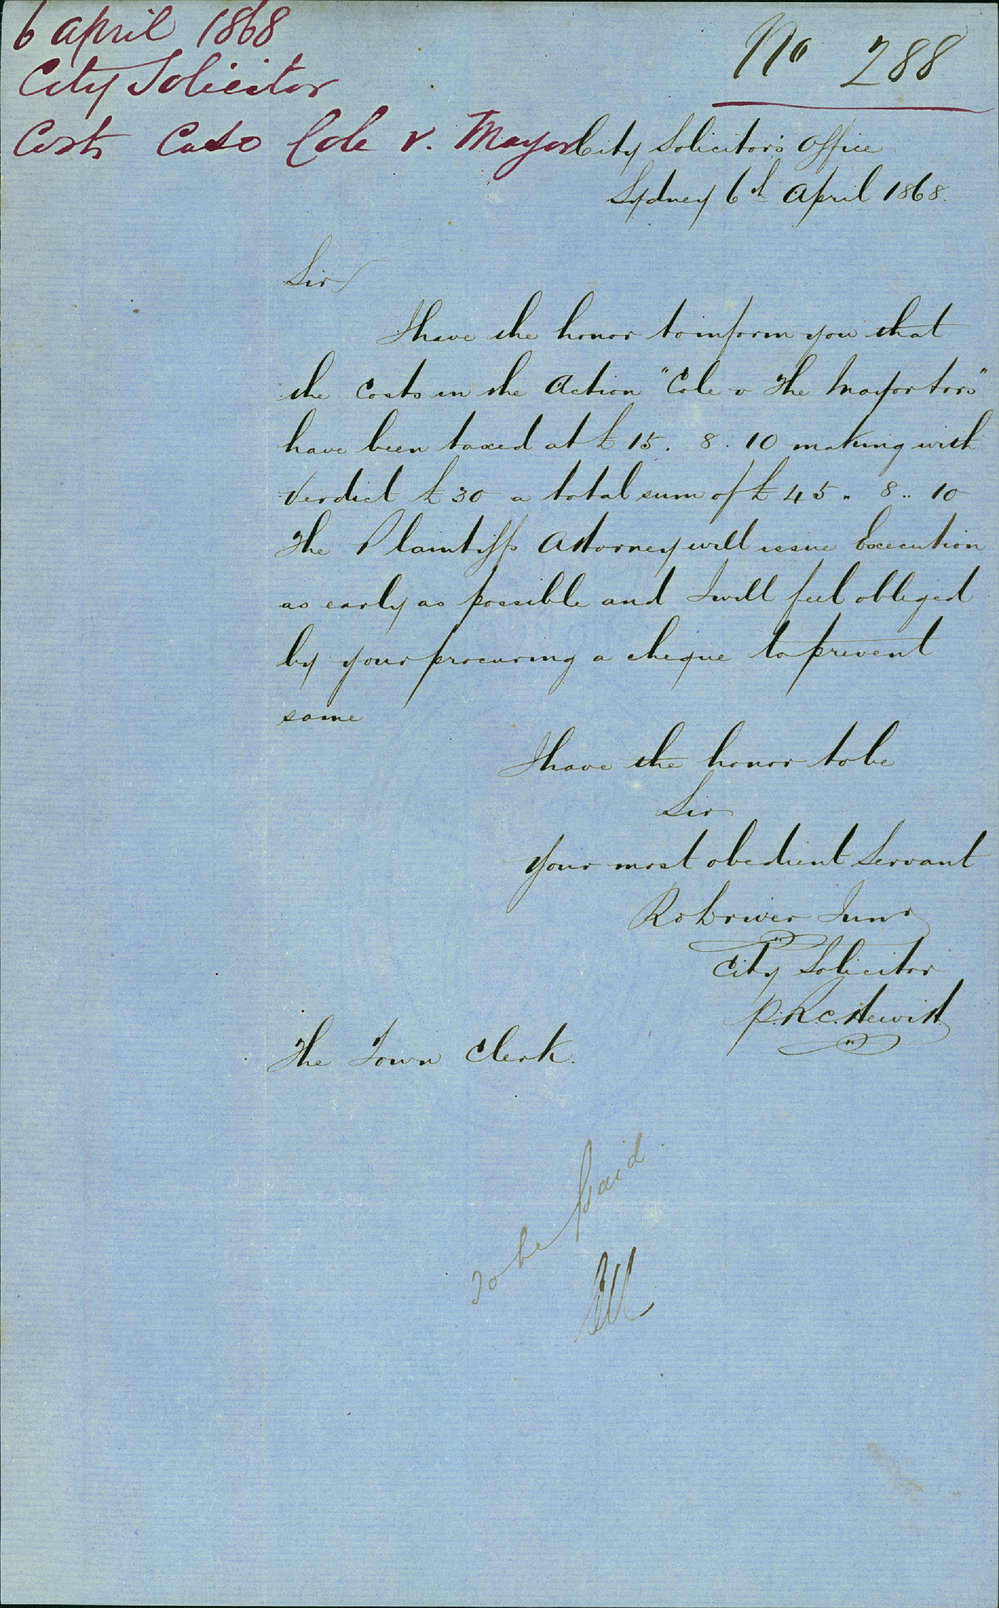 6 April 1868
City Solicitor
Costs Case Cole v. Mayor
No 288
City Solicitor's Office
Sydney 6th April 1868.
Sir
I have the honor to inform you that
the Costs in the Action "Cole v The Mayor &c"
have been taxed at £15. 8. 10 making with
Verdict £30 a total sum of £45. 8. 10
The Plaintiffs Attorney will issue Execution
as early as possible and I will feel obliged
by your procuring a cheque to prevent
same
I have the honor to be
Sir
Your most obedient Servant
Ro Driver Junr
City Solicitor
P.R.C. Hewitt
The Town Clerk.
To be paid